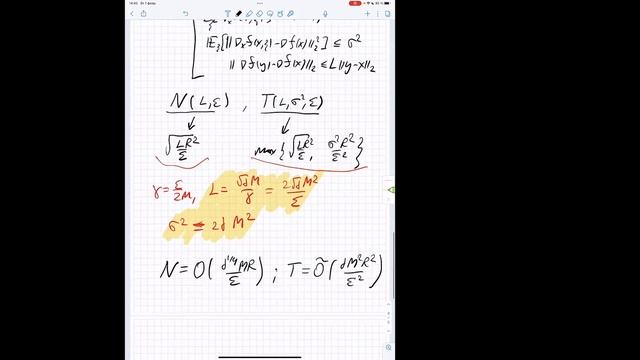 𝔼_ξ[‖∇_x f(x,ξ)-∇f(x)‖₂²] ≤ σ²
‖∇f(y)-∇f(x)‖₂ ≤ L‖y-x‖₂
N(L,ε) , T(L,σ²,ε)
↓ ↓
√(LR²/ε) max{√(LR²/ε), σ²R²/ε²}
γ = ε/2M, L = √d M/γ = 2√d M²/ε
σ² ≤ 2d M²
N = O(d^{1/4} MR/ε) ; T = Õ(dM²R²/ε²)